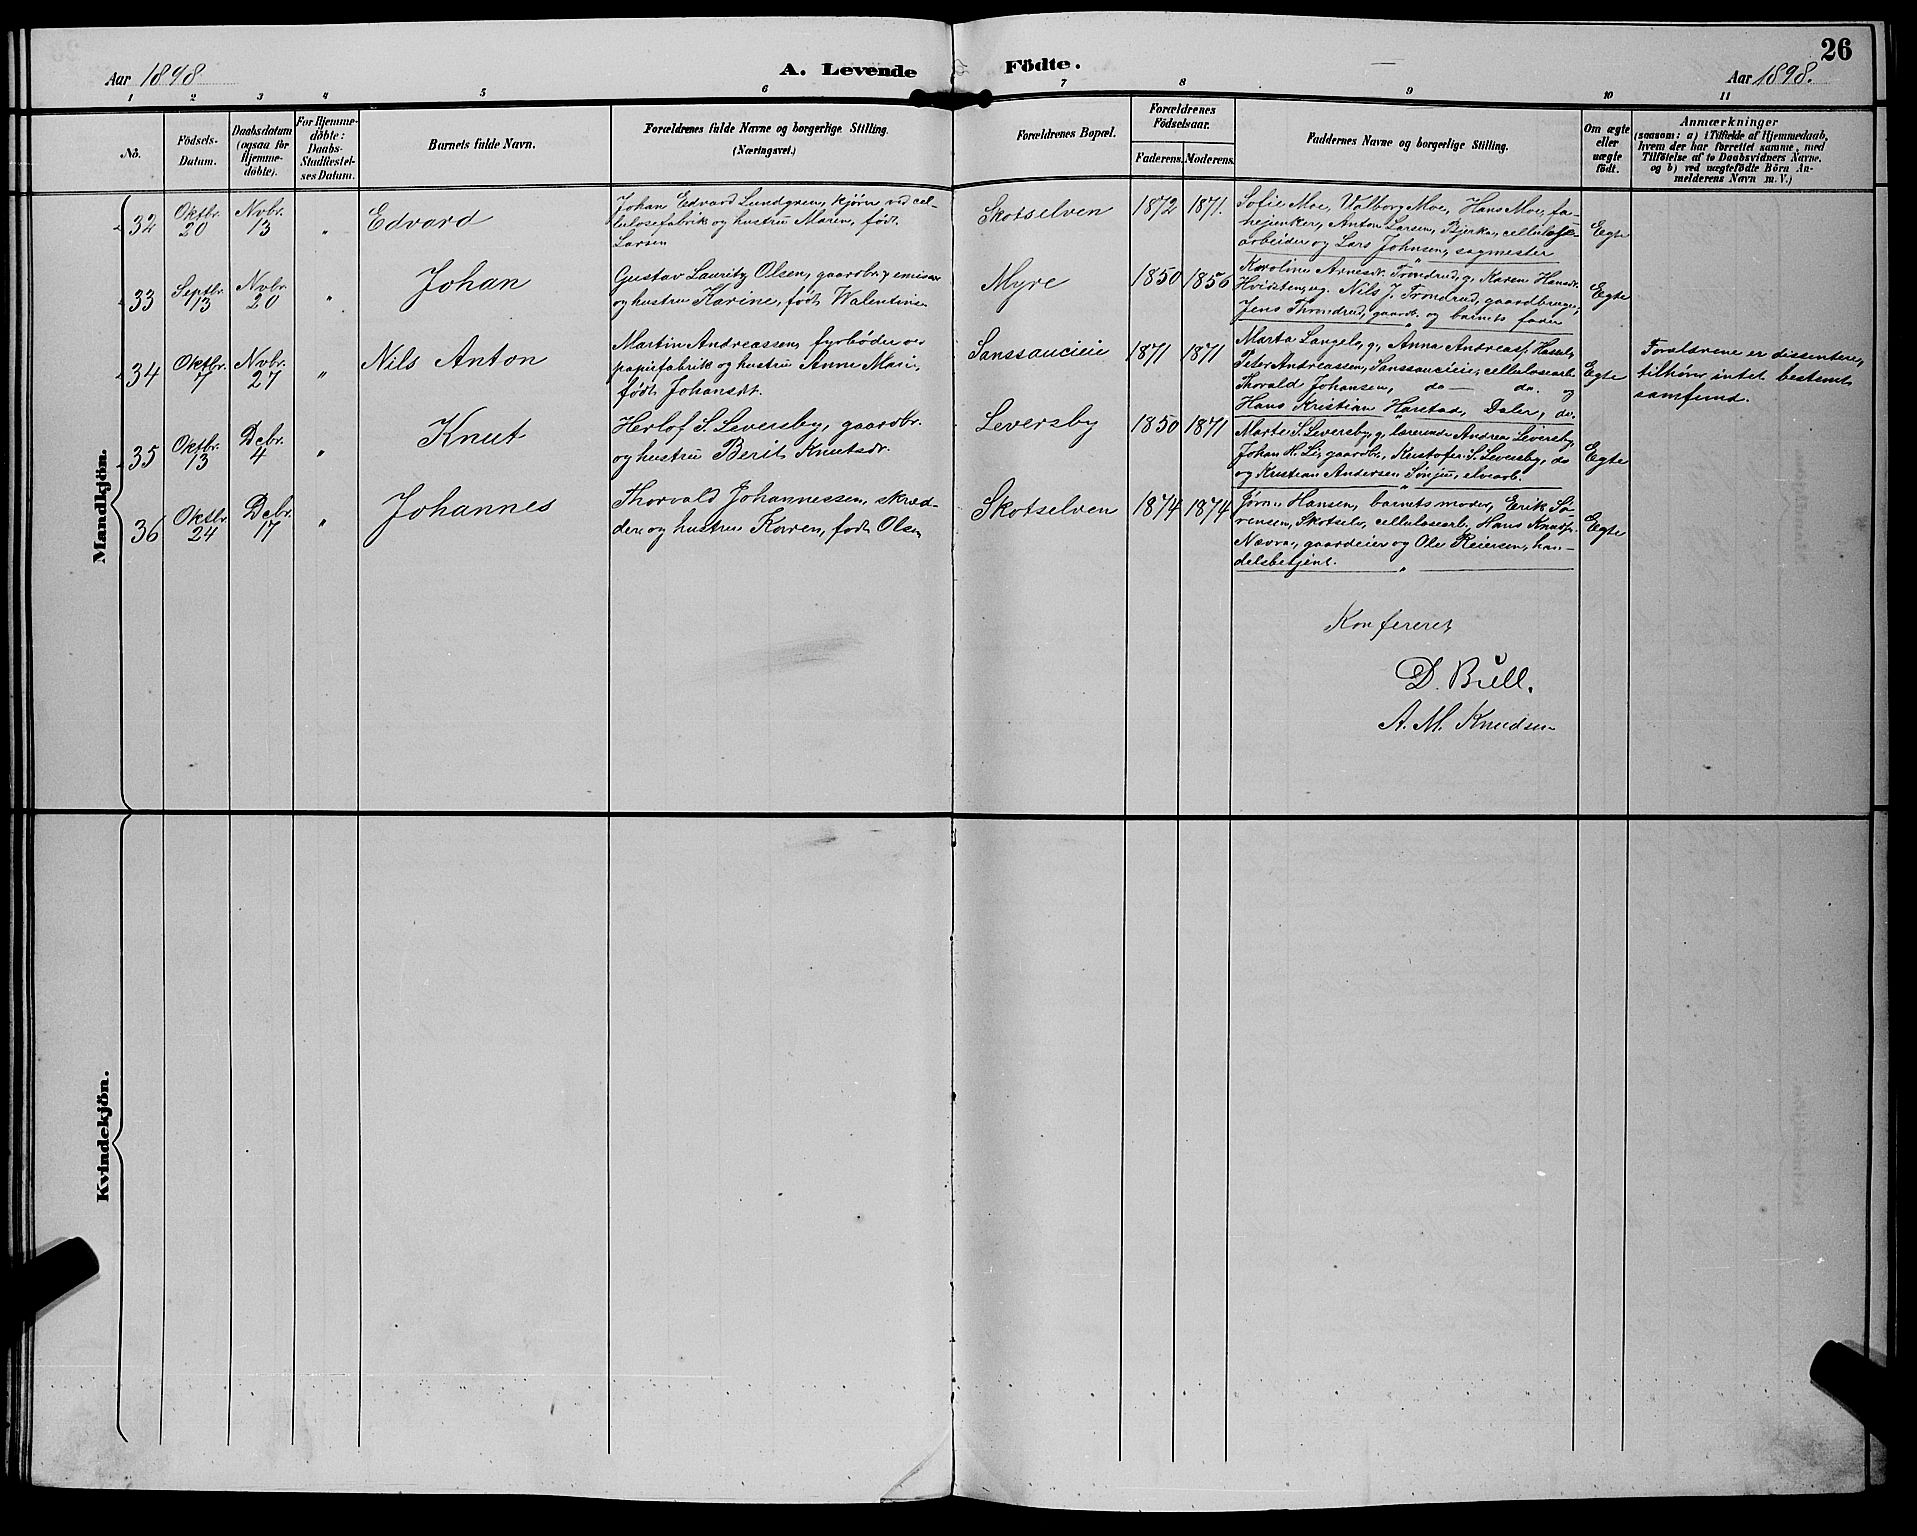 26
Aar 1898
A. Levende
Födte.
Aar 1898.
1 2 3 4 5 6 7 8 9 10 11
No.
Födsels-
Datum.
Daabsdatum
(ogsaa for
Hjemme-
døbte).
For Hjemme-
døbte:
Daabs-
Stadfæstel-
ses Datum.
Barnets fulde Navn.
Forældrenes fulde Navne og borgerlige Stilling.
(Næringsvei.)
Forældrenes Bopæl.
Forældrenes
Födselsaar.
Faderens. Moderens.
Faddernes Navne og borgerlige Stilling.
Om ægte
eller
uægte
födt.
Anmærkninger
(saasom: a) i Tilfælde af Hjemmedaab,
hvem der har forrettet samme, med
Tilföielse af to Daabsvidners Navne,
og b) ved uægtefödte Börn An-
melderens Navn m. V.)
Mandkjön.
32
Oktbr.
20
Nvbr.
13
"
Edvard
Johan Edvard Lundgren, kjører ved cel-
lulosefabrik og hustru Maren, født
Larsen
Skotselven
1872
1871.
Sofie Moe, Valborg Moe, Hans Moe,
Anton Larsen, Bjerka, cellulose-
arbeider og Lars Johnsen, sagmester
Egte
33
Septbr.
13
Nvbr.
20
"
Johan
Gustav Lauritz Olsen, gaardbr. emissær
og hustru Karine, født Valentinsen
Myre
1850
1856
Karoline Arnesdr. Trondrud, g, Karen Hansdr.
Hvidsten, ug. Nils J. Trondrud, gaardbruger,
Jens Throndrud, gaardb. og barnets fader
Egte
34
Oktbr.
7
Nvbr.
27
"
Nils Anton
Martin Andreassen, fyrbøder ved
papirfabrik og hustru Anne Marie,
født Johansdt.
Sanssouceie
1871
1871
Marta Langel, g, Anna Andreasf. Hassel,
Peter Andreassen, Sanssouceie, cellulosearb.
Thorald Johansen, do — do. og
Hans Kristian Harstad, Daler, do.
Egte
Forældrene er dissentere,
tilhører intet bestemt
samfund.
35
Oktbr.
13
Dcbr.
4
"
Knut
Herlof S. Leversby, gaardbr.
og hustru Berit Knutsdr.
Leversby
1850
1871
Marte S. Leversby, g, lærerinde Andrea Leversby,
Johan H. Lie, gaardbr., Kristofer S. Leversby, do
og Kristian Andersen elvearb.
Egte
36
Oktbr.
24
Dcbr.
17
"
Johannes
Thorvald Johannessen, skræd-
der og hustru Karen, født Olsen
Skotselven
1874
1874
Jørn Hansen, barnets moder, Erik Sø-
rensen, Skotselv, cellulosearb., Hans Knuds.
Nævra, gaardeier og Ole Reiersen, han-
delsbetjent.
Egte
Konfereret
D. Bull.
A. M. Knudsen
Kvindekjön.